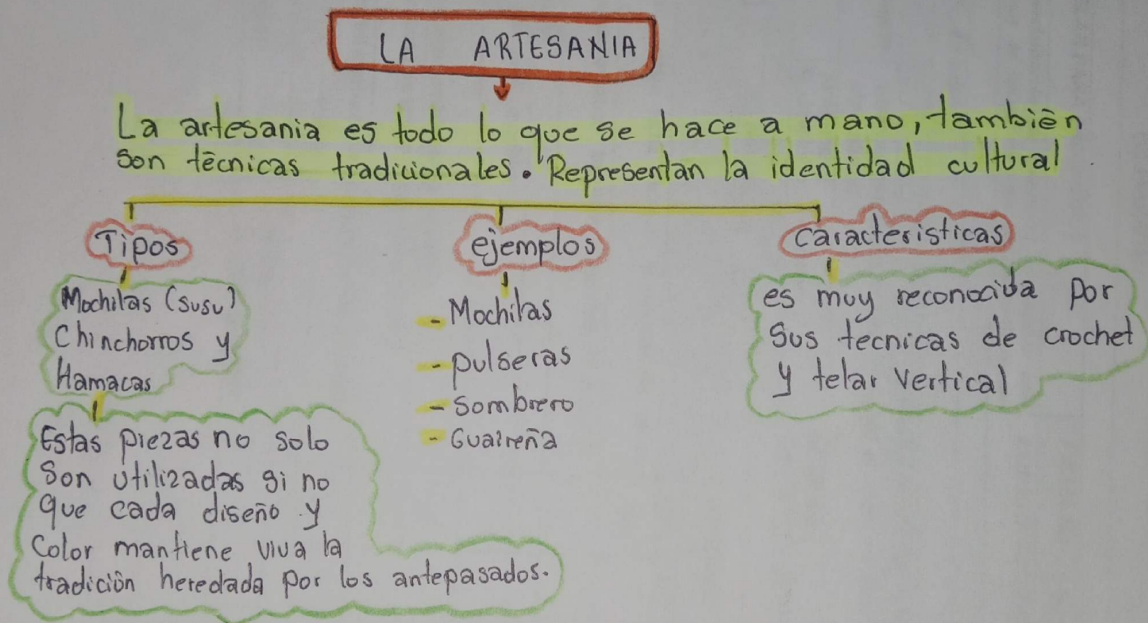 LA ARTESANIA
La artesania es todo lo que se hace a mano, también
son técnicas tradicionales. Representan la identidad cultural
Tipos
Mochilas (susu)
Chinchorros y
Hamacas
Estas piezas no solo
son utilizadas si no
que cada diseño y
Color mantiene viva la
tradición heredada por los antepasados.
ejemplos
- Mochilas
- pulseras
- sombrero
- Guaireña
caracteristicas
es muy reconocida por
sus tecnicas de crochet
y telar vertical